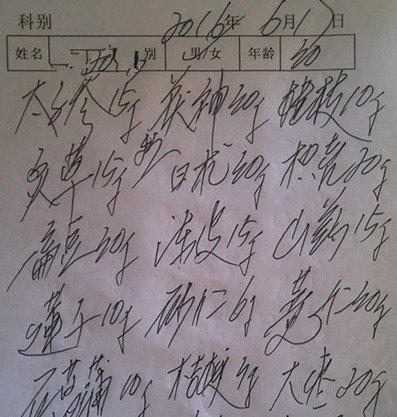 科别 2016年 6月17日
姓名 别 男女 年龄 50
太子参15g 茯神30g 桂枝10g
炙草15g 白术30g 枳壳20g
扁豆30g 陈皮15g 山药15g
莲子10g 砂仁6g 薏仁30g
石菖蒲10g 桔梗 大枣20g